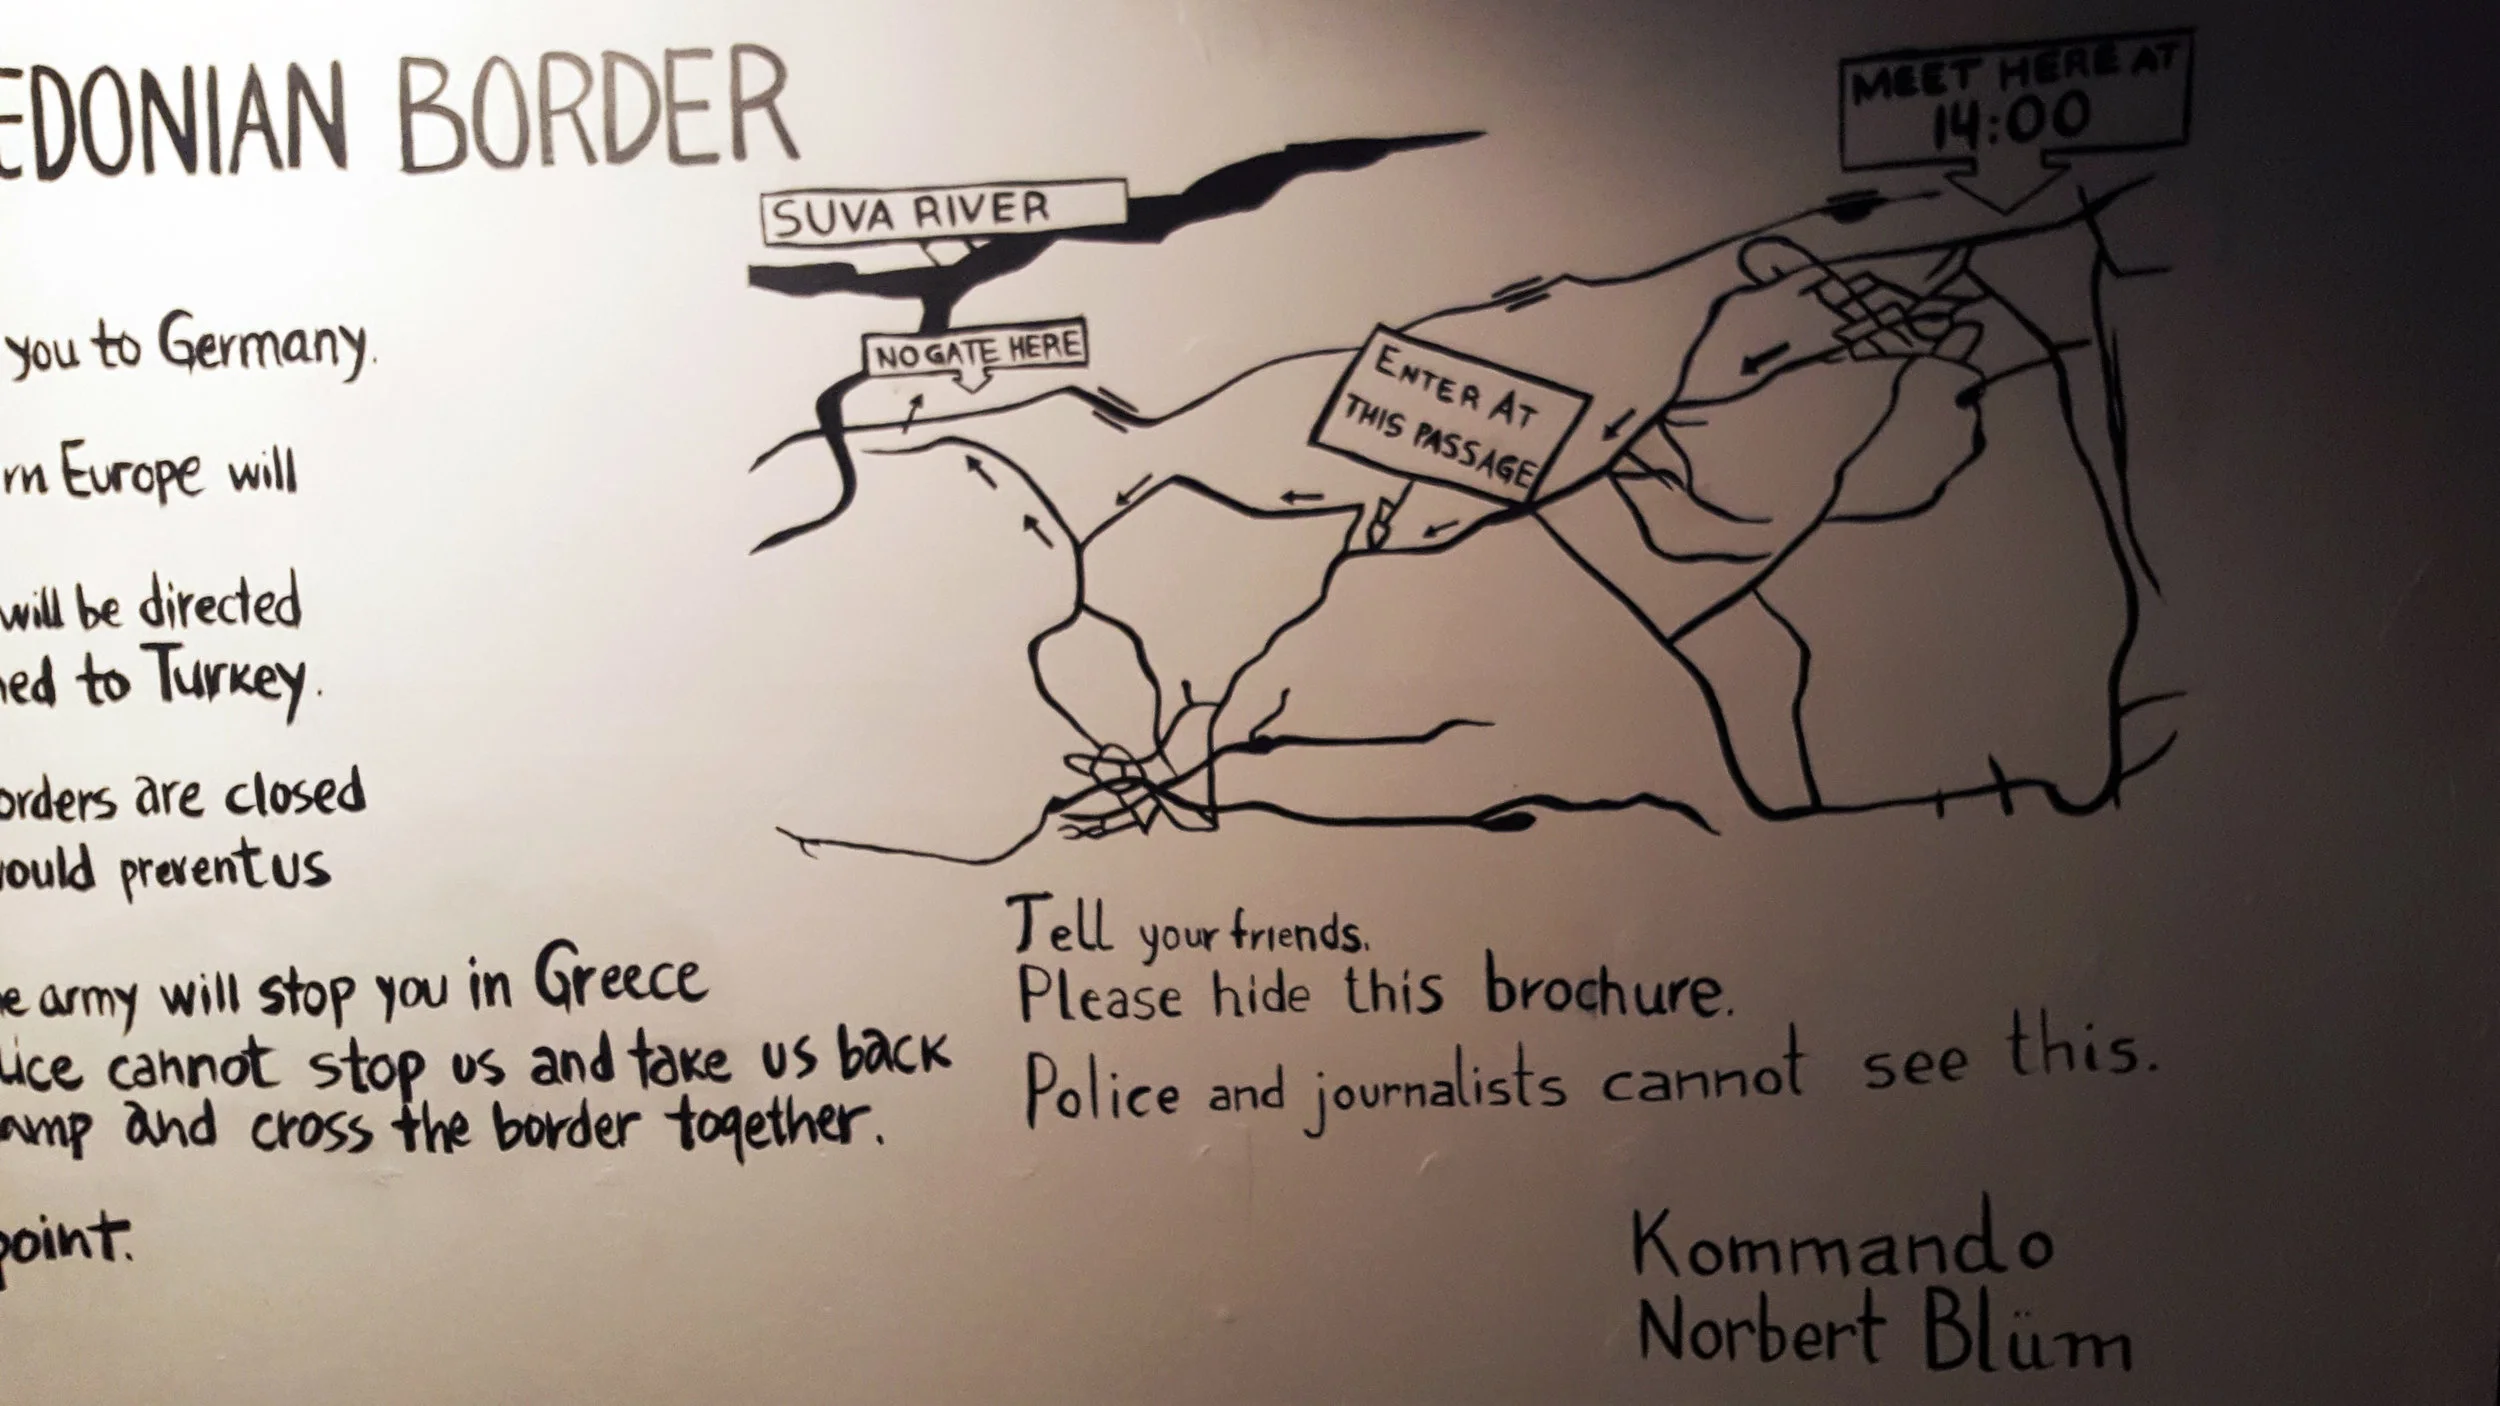 EDONIAN BORDER
you to Germany.
rn Europe will
will be directed
ned to Turkey.
orders are closed
ould prevent us
e army will stop you in Greece
lice cannot stop us and take us back
amp and cross the border together.
point.
SUVA RIVER
NO GATE HERE
ENTER AT
THIS PASSAGE
MEET HERE AT
14:00
Tell your friends.
Please hide this brochure.
Police and journalists cannot see this.
Kommando
Norbert Blüm